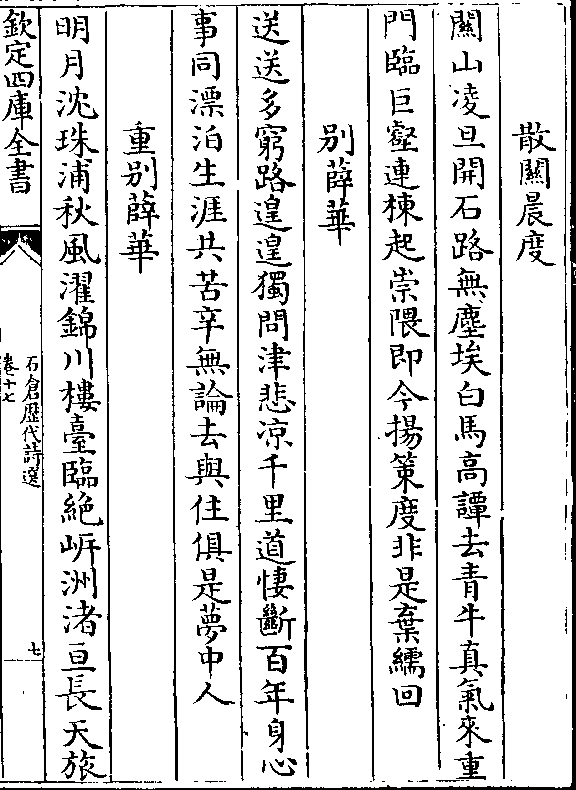 散關晨度
關山凌旦開石路無塵埃白馬高譚去青牛真氣來重
門臨巨壑連棟起崇隈即今揚策度非是棄繻回
别薛華
送送多窮路遑遑獨問津悲凉千里道悽斷百年身心
事同漂泊生涯共苦辛無論去與住俱是夢中人
重别薛華
明月沈珠浦秋風濯錦川樓臺臨絶岍洲渚亘長天旅
欽定四庫全書
石倉歷代詩選
卷十七
七